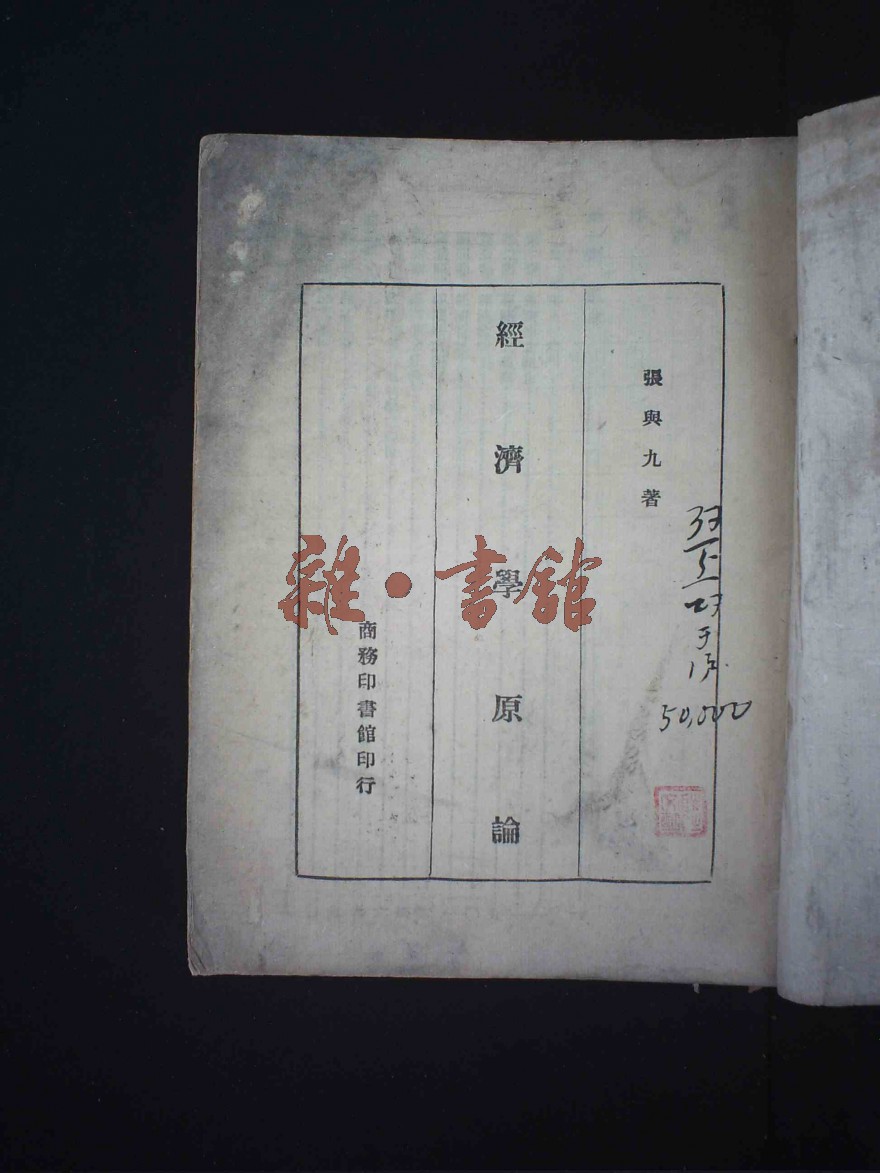 張與九著
經濟學原論
商務印書館印行
50,000
雜·書舘